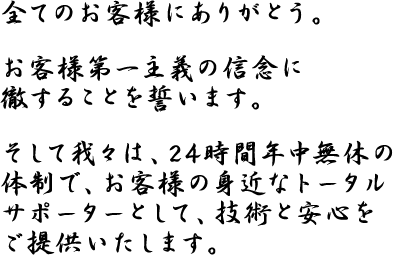 全てのお客様にありがとう。
お客様第一主義の信念に
徹することを誓います。
そして我々は、24時間年中無休の
体制で、お客様の身近なトータル
サポーターとして、技術と安心を
ご提供いたします。